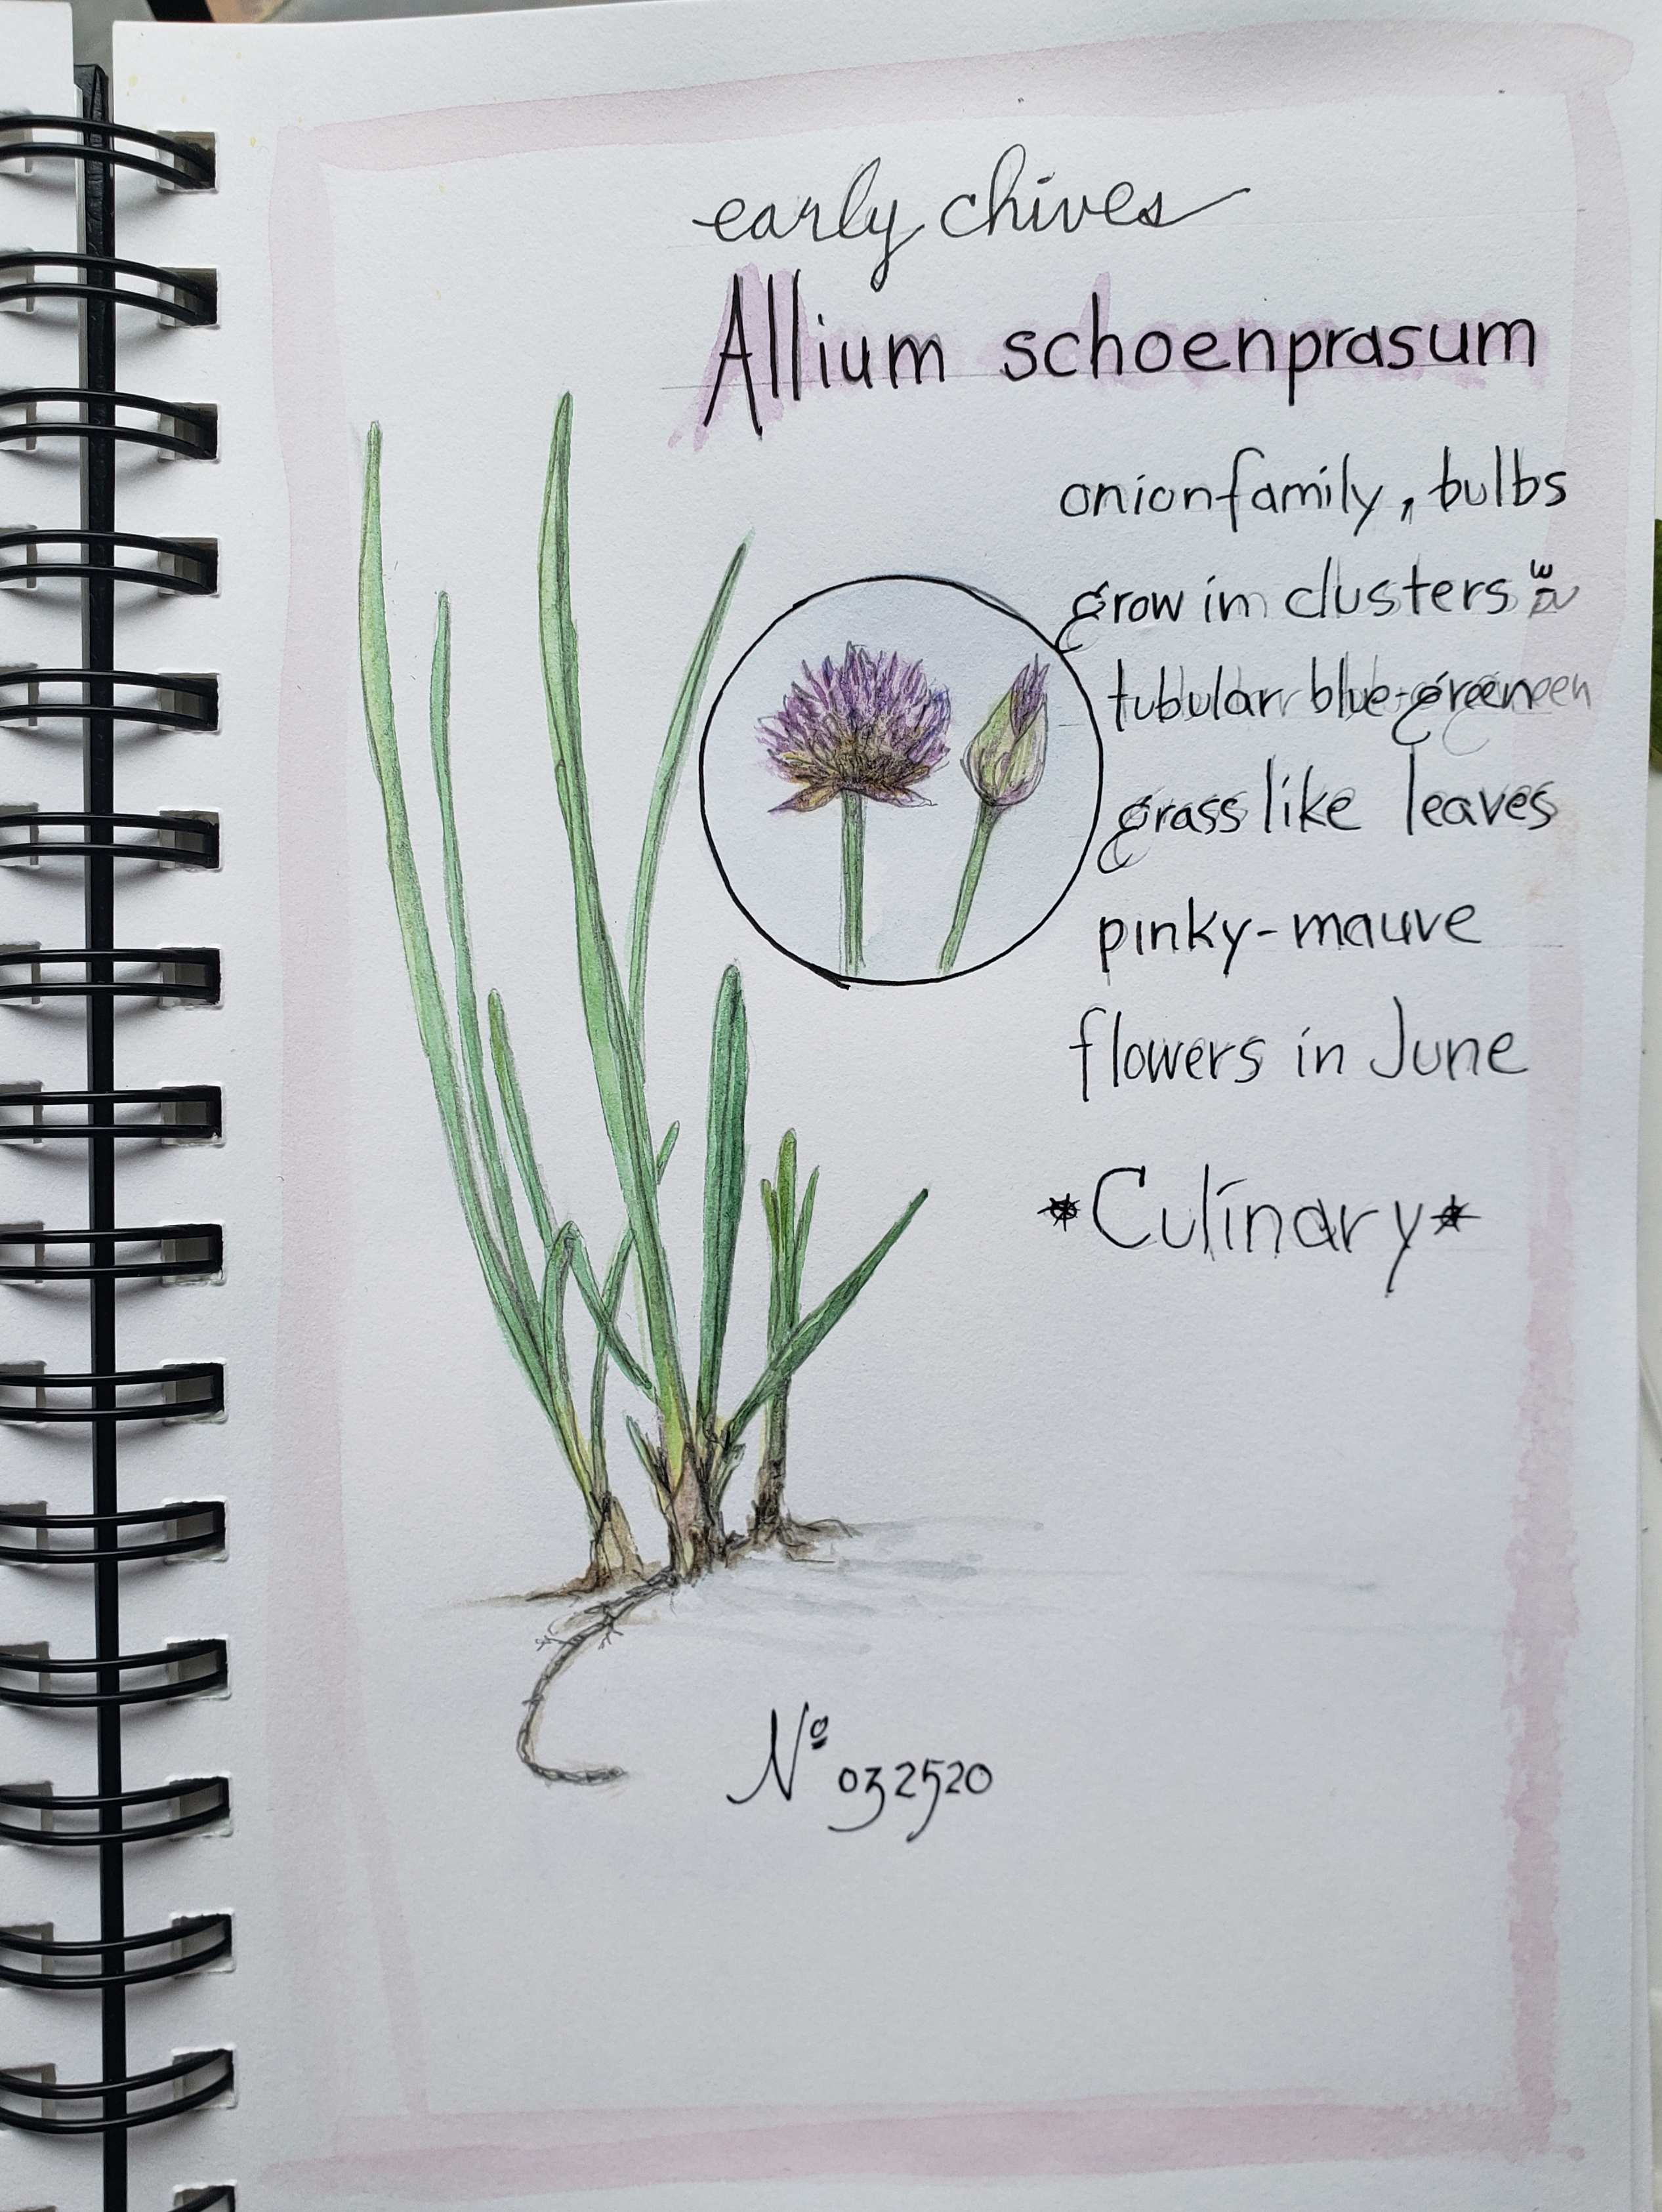 early chives
Allium schoenprasum
onion family, bulbs
grow in clusters
tubular blue-green
grass like leaves
pinky-mauve
flowers in June
*Culinary*
Nº 032520